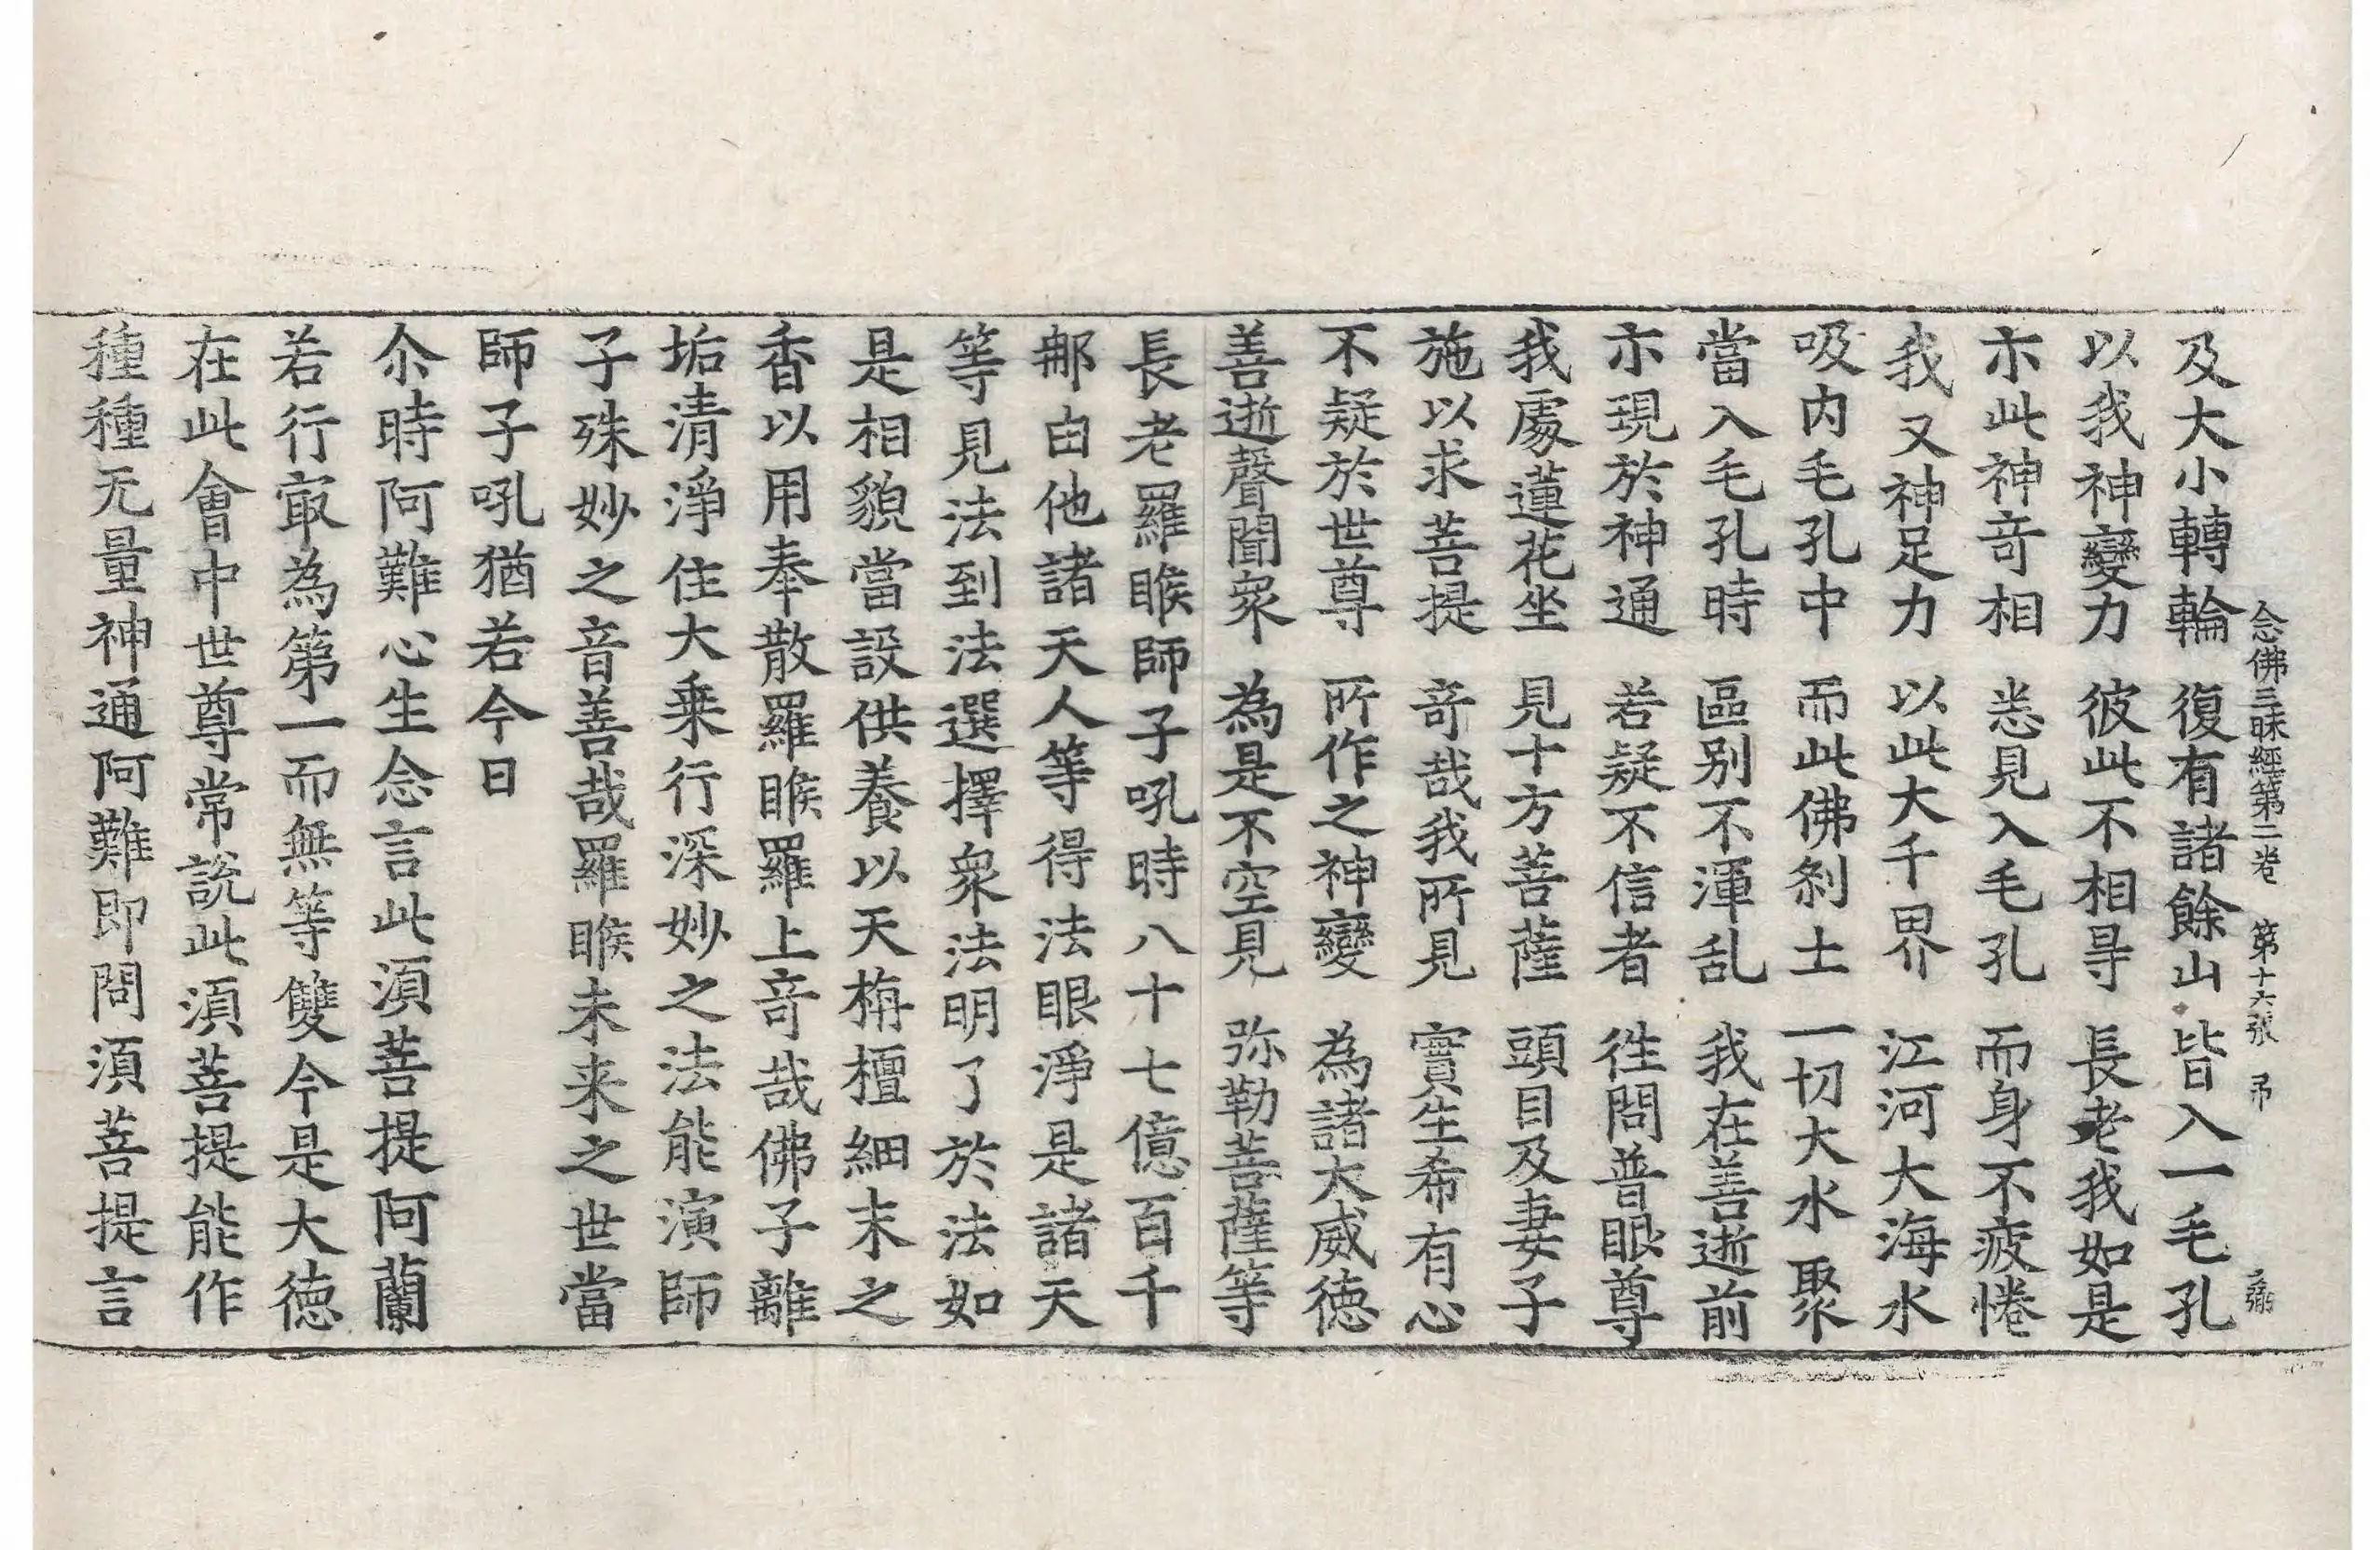 念佛三昧經第二卷　第十六張　弔
及大小轉輪　復有諸餘山　皆入一毛孔
以我神變力　彼此不相㝵　長老我如是
示此神竒相　悉見入毛孔　而身不疲惓
我又神足力　以此大千界　江河大海水
吸内毛孔中　而此佛刹土　一切大水聚
當入毛孔時　區别不渾乱　我在善逝前
示現於神通　若疑不信者　徃問普眼尊
我處蓮花坐　見十方菩薩　頭目及妻子
施以求菩提　竒哉我所見　實生希有心
不疑於世尊　所作之神變　為諸大威徳
善逝聲聞衆　為是不空見　弥勒菩薩等
長老羅睺師子吼時八十七億百千
那由他諸天人等得法眼淨是諸天
等見法到法選擇衆法明了於法如
是相貌當設供養以天栴檀細末之
香以用奉散羅睺羅上竒哉佛子離
垢清淨住大乗行深妙之法能演師
子殊妙之音善哉羅睺未来之世當
師子吼猶若今日
尒時阿難心生念言此湏菩提阿蘭
若行㝡為第一而無等雙今是大徳
在此會中世尊常說此湏菩提能作
種種无量神通阿難即問湏菩提言